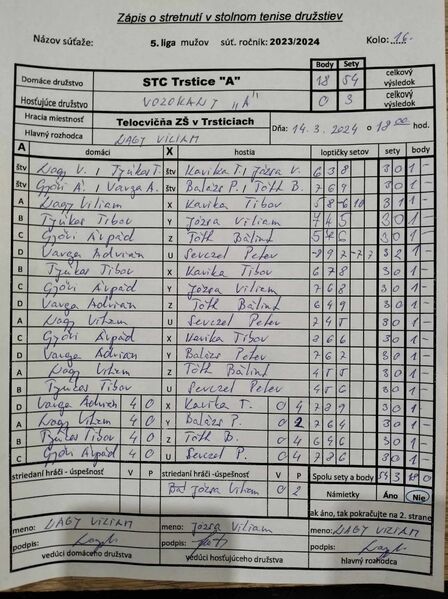 Zápis o stretnutí v stolnom tenise družstiev
Názov súťaže: 5. liga mužov súť. ročník: 2023/2024 Kolo: 16.
Body Sety
Domáce družstvo STC Trstice "A" 18 54 celkový výsledok
Hosťujúce družstvo VOZOKANY "A" 0 3 celkový výsledok
Hracia miestnosť Telocvičňa ZŠ v Trsticiach Dňa: 14.3.2024 o 18 00 hod.
Hlavný rozhodca NAGY VILIAM
A domáci X hostia loptičky setov sety body
štv Nagy V., Tyukos T. štv Kavika T., Józsa V. 6 3 8 3 0 1 -
štv Győri Á., Varga A. štv Balázs P., Tóth B. 7 6 9 3 0 1 -
A Nagy Viliam X Kavika Tibor 5 8 -6 10 3 1 1 -
B Tyukos Tibor Y Józsa Viliam 3 0 1 -
C Győri Árpád Z Tóth Bálint 3 0 1 -
D Varga Adrian U Sevczel Peter 3 2 1 -
B Tyukos Tibor X Kavika Tibor 6 7 8 3 0 1 -
C Győri Árpád Y Józsa Viliam 7 6 8 3 0 1 -
D Varga Adrian Z Tóth Bálint 6 4 9 3 0 1 -
A Nagy Viliam U Sevczel Peter 7 4 5 3 0 1 -
C Győri Árpád X Kavika Tibor 8 6 6 3 0 1 -
D Varga Adrian Y Balázs Peter 7 6 7 3 0 1 -
A Nagy Viliam Z Tóth Bálint 4 5 5 3 0 1 -
B Tyukos Tibor U Sevczel Peter 4 5 6 3 0 1 -
D Varga Adrian 4 0 X Kavika T. 0 4 7 8 9 3 0 1 -
A Nagy Viliam 4 0 Y Balázs P. 0 2 7 8 9 3 0 1 -
B Tyukos Tibor 4 0 Z Tóth B. 0 4 6 4 6 3 0 1 -
C Győri Árpád 4 0 U Sevczel P. 0 4 3 0 1 -
striedaní hráči - úspešnosť V P striedaní hráči - úspešnosť V P Spolu sety a body 54 3 18 0
Józsa Viliam 0 2 Námietky Áno Nie
ak áno, tak pokračujte na 2. strane
meno: NAGY VILIAM meno: Józsa Viliam meno: NAGY VILIAM
podpis: podpis: podpis:
vedúci domáceho družstva vedúci hosťujúceho družstva hlavný rozhodca